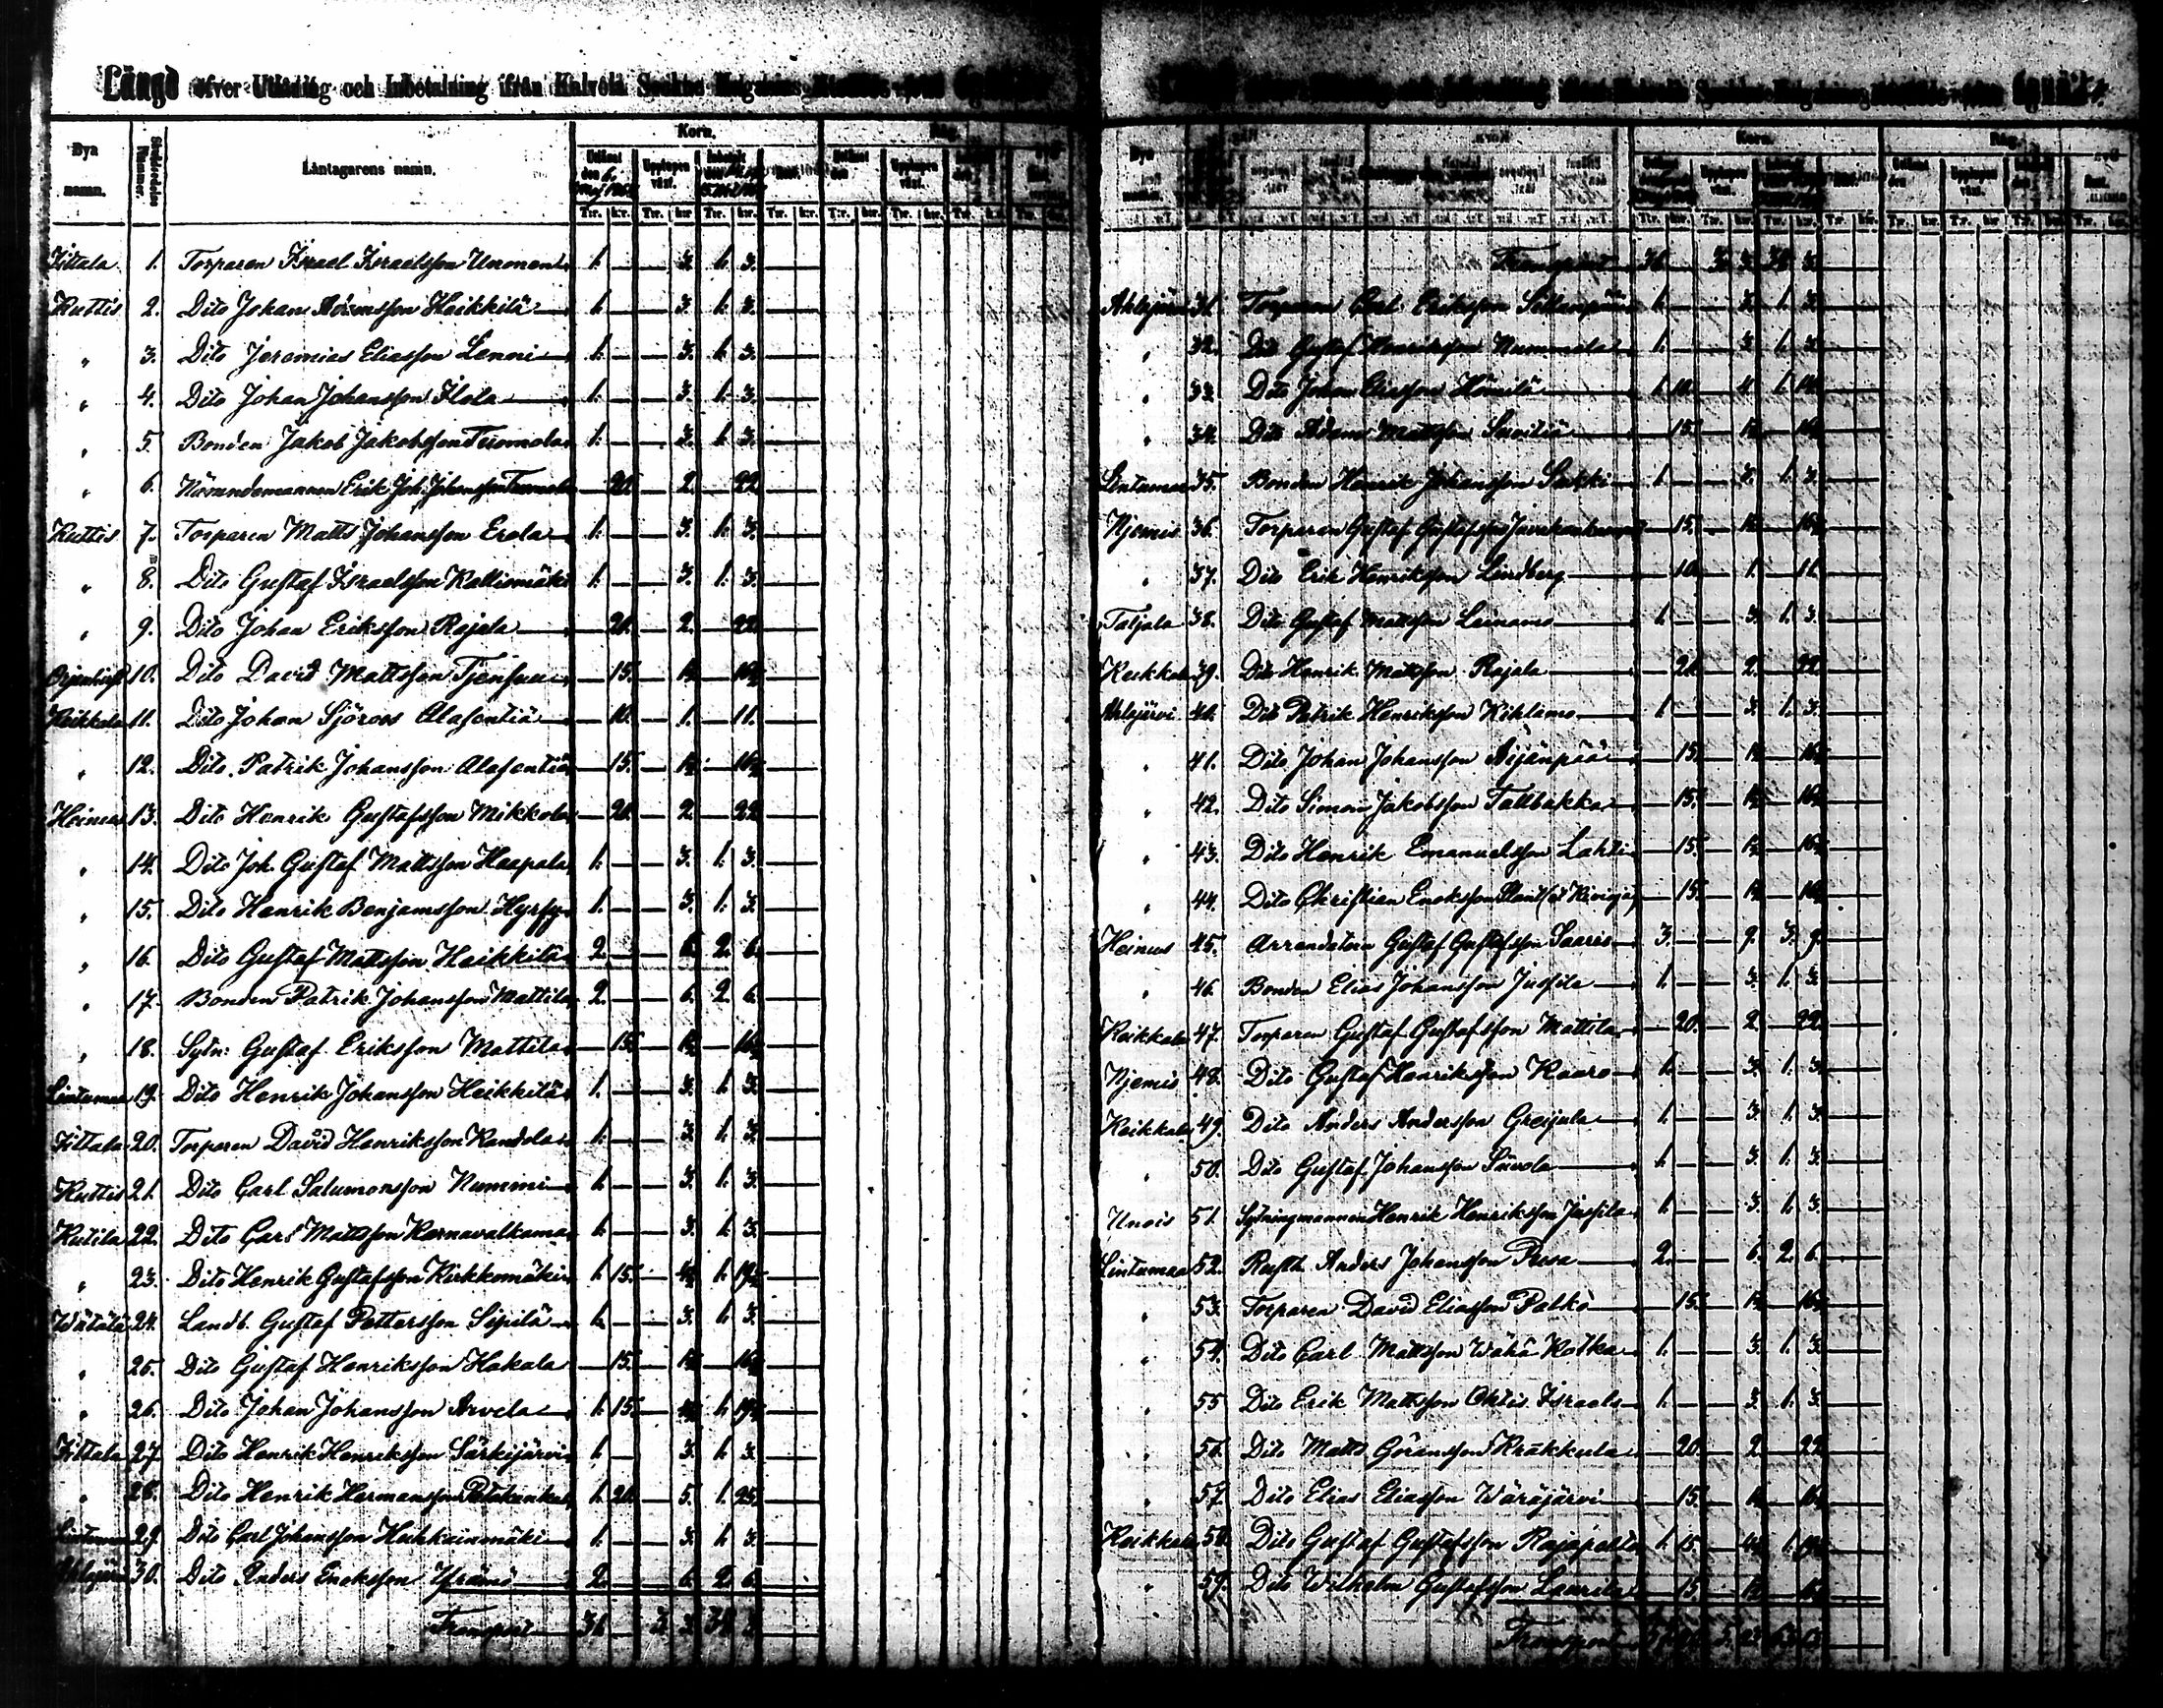 Längd öfver Utlåning och Inbetalning ifrån Kalvola Sockne Magasins
Bya namn. Låntagarens namn. Korn.
Utlånt den Upplupen växt.
T:r. k:r. T:r. k:r. T:r. k:r. T:r. k:r.
Ittala 1. Torparen Israel Israelsson Uronen 1. — — 3. 1. 3.
Kuttis 2. Dito Johan Adamsson Heikkilä 1. — — 3. 1. 3.
„ 3. Dito Jeremias Eliasson Lenni 1. — — 3. 1. 3.
„ 4. Dito Johan Johansson Ilola 1. — — 3. 1. 3.
„ 5. Bonden Jakob Jakobsson Tuomola 1. — — 3. 1. 3.
„ 6. Nämndemannen Erik Joh. Johansson Tuomola — 20. — 2. — 22.
Kuttis 7. Torparen Matts Johansson Erola 1. — — 3. 1. 3.
„ 8. Dito Gustaf Israelsson Kalliomäki 1. — — 3. 1. 3.
„ 9. Dito Johan Eriksson Rajala — 20. — 2. — 22.
10. Dito David Mattsson — 15. — 1½ — 16½
Keikkala 11. Dito Johan Sjöroos Alasentiä — 10. — 1. — 11.
„ 12. Dito Patrik Johansson Alasentiä — 15. — 1½ — 16½
Heinus 13. Dito Henrik Gustafsson Mikkola — 20. — 2. — 22.
„ 14. Dito Joh. Gustaf Mattsson Haapala 1. — — 3. 1. 3.
„ 15. Dito Henrik Benjamsson Hyrsy 1. — — 3. 1. 3.
„ 16. Dito Gustaf Mattsson Heikkilä 2. — — 6. 2. 6.
„ 17. Bonden Patrik Johansson Mattila 2. — — 6. 2. 6.
„ 18. Sytn: Gustaf Eriksson Mattila — 15. — 1½ — 16½
Lintumaa 19. Dito Henrik Johansson Heikkilä 1. — — 3. 1. 3.
Ittala 20. Torparen David Henriksson Kandola 1. — — 3. 1. 3.
Kuttis 21. Dito Carl Salumonsson Nummi 1. — — 3. 1. 3.
Kutila 22. Dito Carl Mattsson Karnavalkama 1. — — 3. 1. 3.
„ 23. Dito Henrik Gustafsson Kirkkomäki 1. 15. — 4½ 1. 19½
Wätälä 24. Landb. Gustaf Pettersson Sipilä 1. — — 3. 1. 3.
„ 25. Dito Gustaf Henriksson Hakala — 15. — 1½ — 16½
„ 26. Dito Johan Johansson Arvela 1. 15. — 4½ 1. 19½
Ittala 27. Dito Henrik Henriksson Särkijärvi 1. — — 3. 1. 3.
„ 28. Dito Henrik Hermansson 1. 20. — 5. 1. 25.
Lintumaa 29. Dito Carl Johansson Huhkainmäki 1. — — 3. 1. 3.
Ahlajärvi 30. Dito Anders Enoksson 2. — — 6. 2. 6.
Transport
Transport
Ahlajärvi 31. Torparen Carl Eriksson Sillanpää 1. — — 3. 1. 3.
„ 32. Dito Gustaf Henriksson Nummela 1. — — 3. 1. 3.
„ 33. Dito Johan Eliasson 1. 10. — 4. 1. 14.
„ 34. Dito Adam Mattsson — 15. — 1½ — 16½
Lintumaa 35. Bonden Henrik Johansson 1. — — 3. 1. 3.
Njemis 36. Torparen Gustaf Gustafsson — 15. — 1½ — 16½
„ 37. Dito Erik Henriksson Lindberg — 10. — 1. — 11.
Taljala 38. Dito Gustaf Mattsson Leinamo 1. — — 3. 1. 3.
Keikkala 39. Dito Henrik Mattsson Rajala — 20. — 2. — 22.
Ahlajärvi 40. Dito Patrik Henriksson Kihlamo 1. — — 3. 1. 3.
„ 41. Dito Johan Johansson Äijänpää — 15. — 1½ — 16½
„ 42. Dito Simon Jakobsson Tallbakka — 15. — 1½ — 16½
„ 43. Dito Henrik Emanuelsson Lahti — 15. — 1½ — 16½
„ 44. Dito Christian Enoksson — 15. — 1½ — 16½
Heinus 45. Arrendatorn Gustaf Gustafsson Saaris 3. — — 9. 3. 9.
„ 46. Bonden Elias Johansson Jussila 1. — — 3. 1. 3.
Keikkala 47. Torparen Gustaf Gustafsson Mattila — 20. — 2. — 22.
Njemis 48. Dito Gustaf Henriksson Kaaro 1. — — 3. 1. 3.
Keikkala 49. Dito Anders Andersson Greijula 1. — — 3. 1. 3.
„ 50. Dito Gustaf Johansson Suvola 1. — — 3. 1. 3.
Unois 51. Sytningmannen Henrik Henriksson Jussila 1. — — 3. 1. 3.
Lintumaa 52. Rusth. Anders Johansson 2. — — 6. 2. 6.
„ 53. Torparen David Eliasson Palko — 15. — 1½ — 16½
„ 54. Dito Carl Mattsson Wähä Kotka 1. — — 3. 1. 3.
„ 55 Dito Erik Mattsson Israels 1. — — 3. 1. 3.
„ 56. Dito Matts Göransson Kräkkula — 20. — 2. — 22.
„ 57. Dito Elias Eliasson Wäräjärvi — 15. — 1½ — 16½
Keikkala 58. Dito Gustaf Gustafsson Rajapelto 1. 15. — 4½ 1. 19½
„ 59. Dito Wilhelm Gustafsson Laurila — 15. — 1½ — 16½
Transport